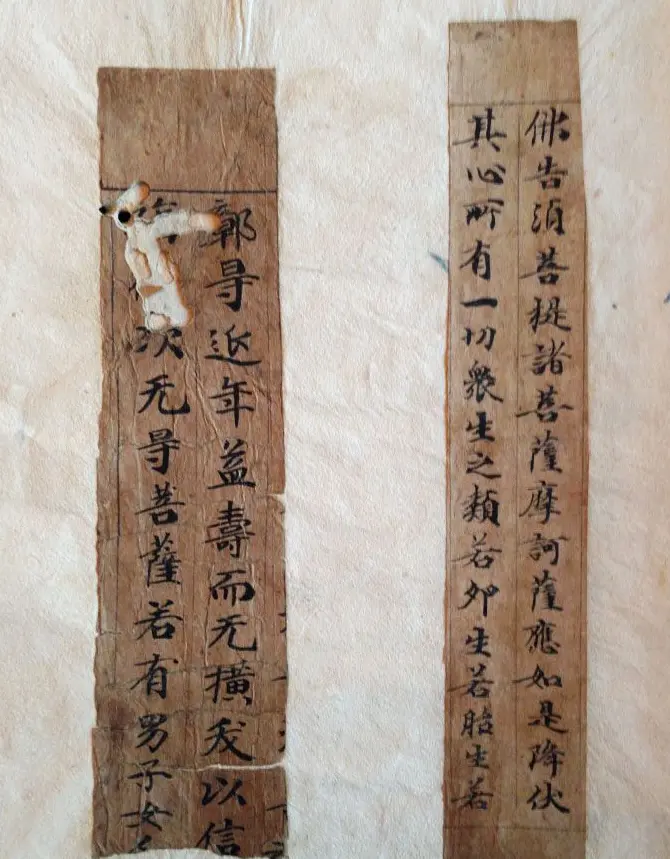 佛告須菩提諸菩薩摩訶薩應如是降伏
其心所有一切衆生之類若卵生若胎生若
鄣㝵延年益壽而无撗夭以信
次无㝵菩薩若有男子女